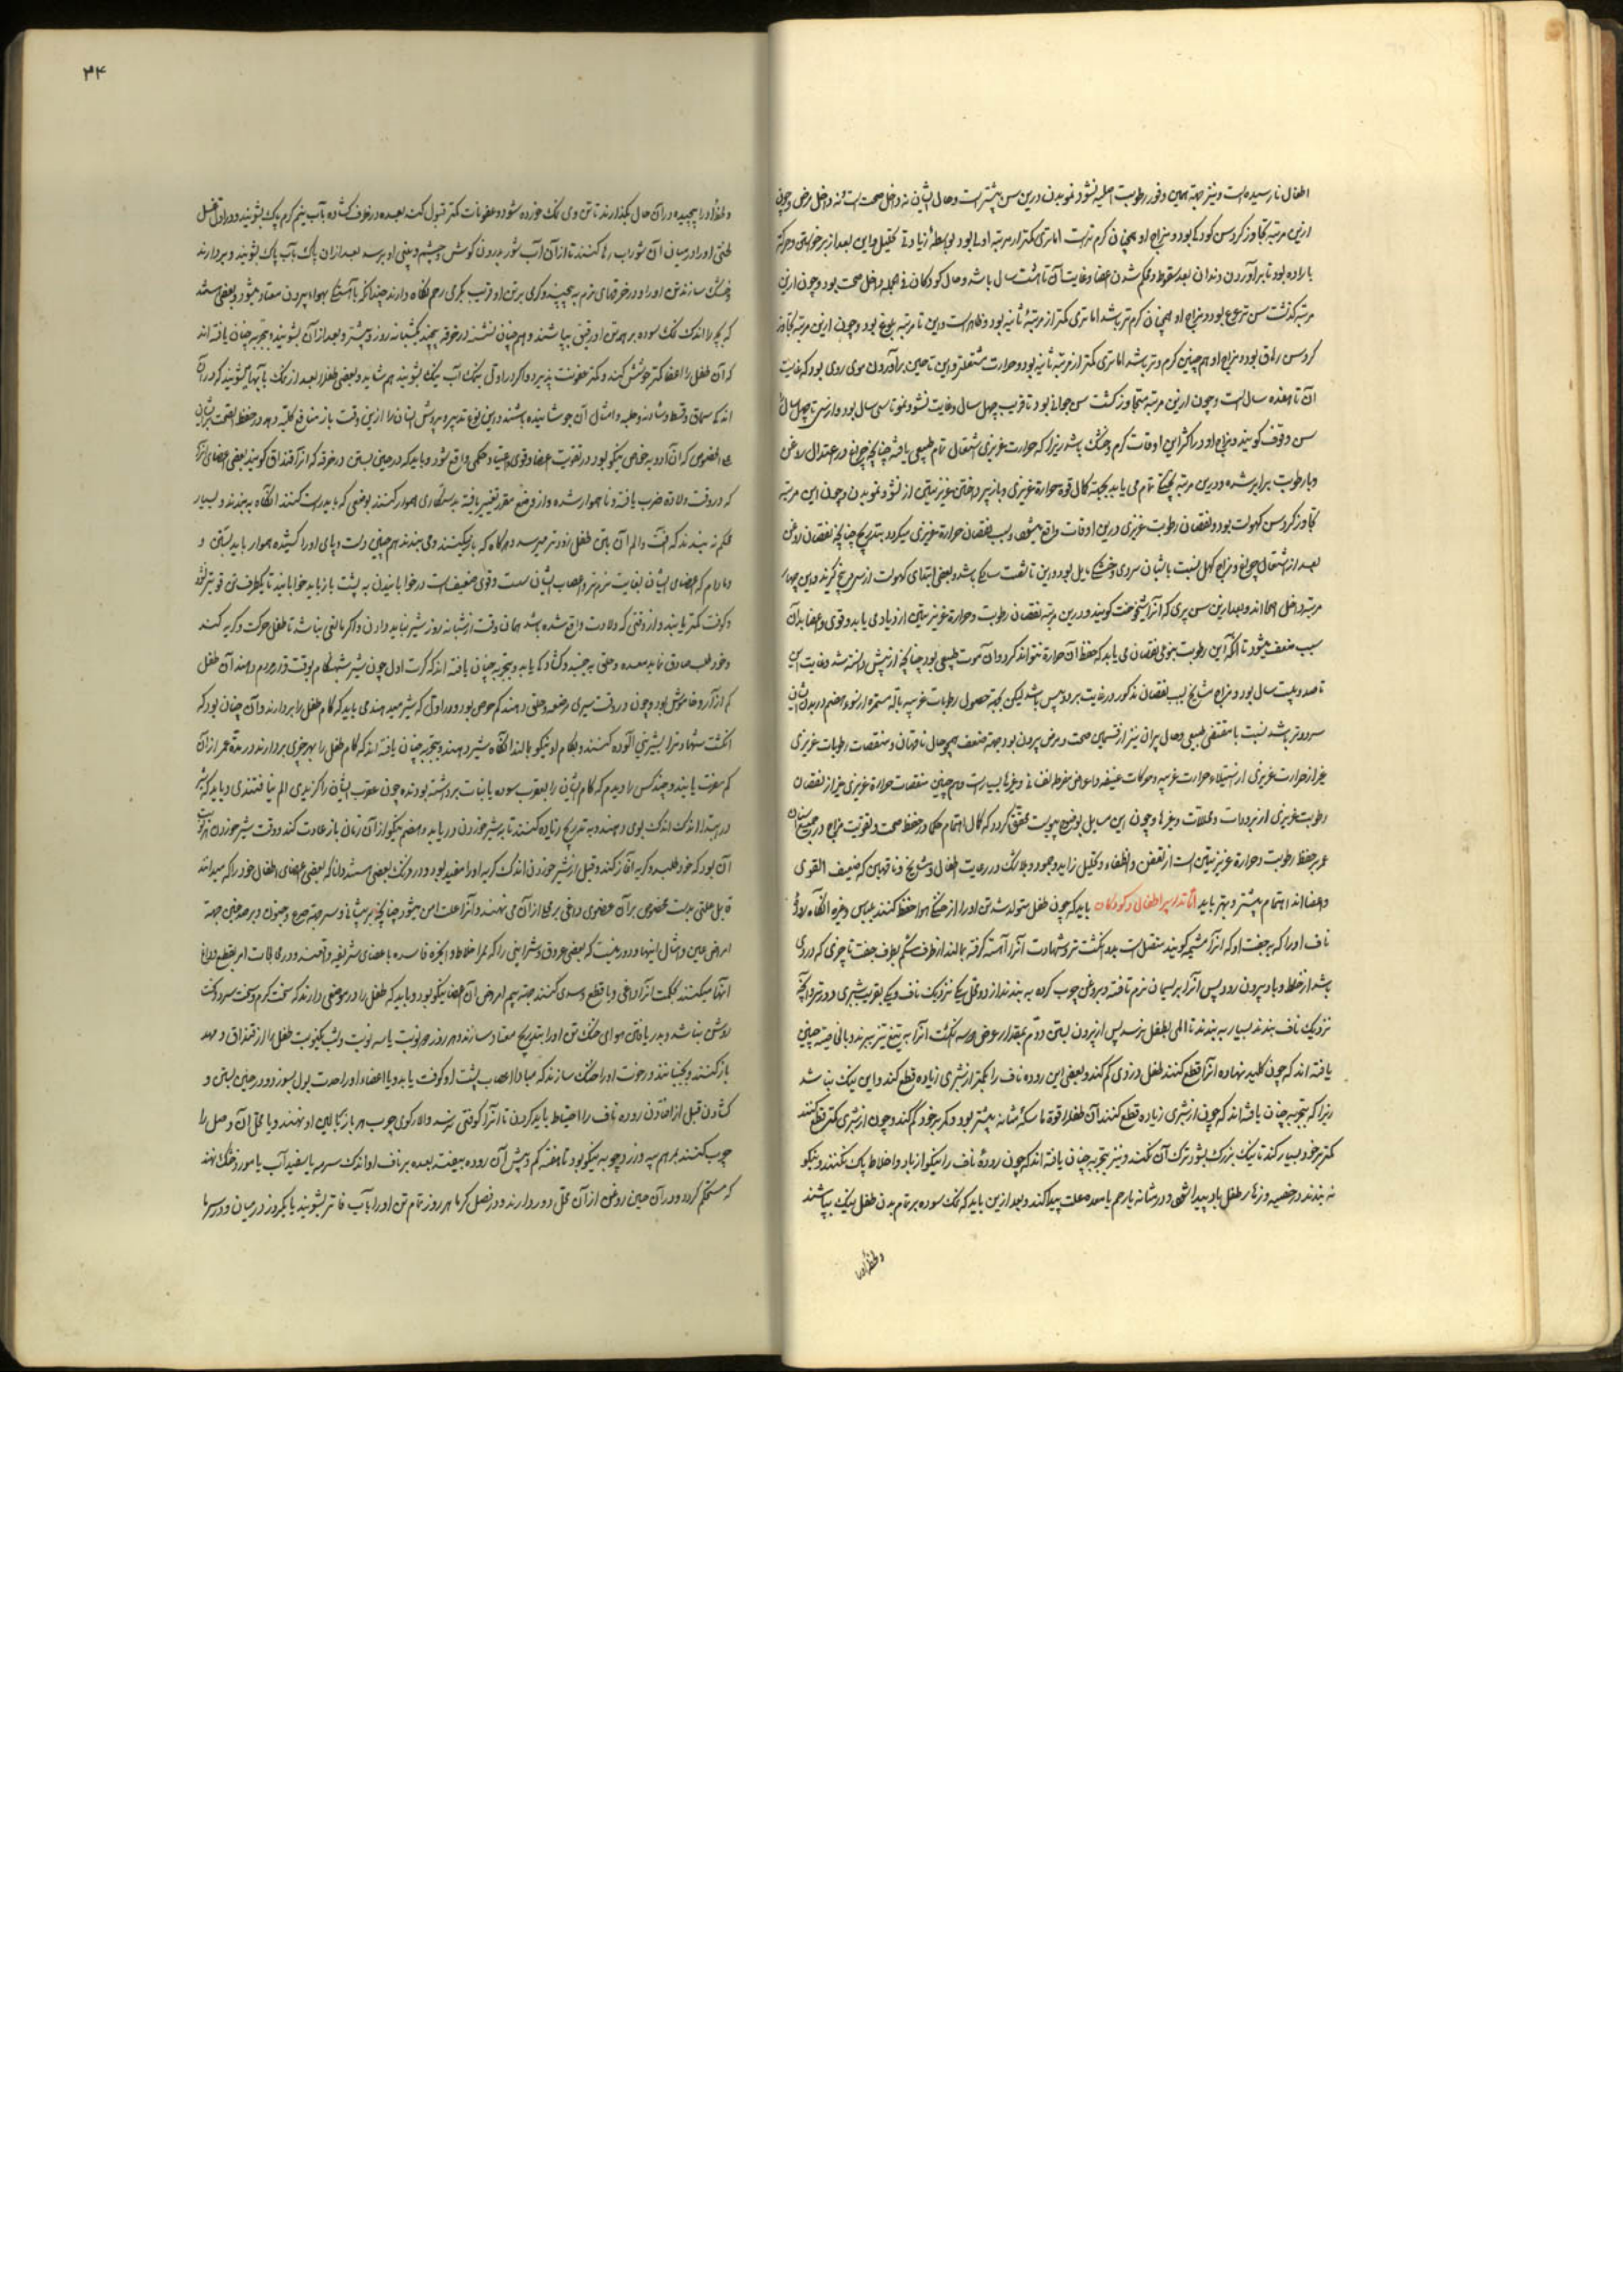 اطفال نارسیده است و نیز جهة همین وفور رطوبت اصلیه نشو و نمو بدن درین سن بیشتر است و حال ایشان نه داخل صحت است و نه داخل مرض و چون
ازین مرتبه تجاوز کرد سن کودکی بود و مزاج او همچنان کرم تر است اما تری کمتر از مرتبه اولی بود بواسطۀ زیادتی تحلیل و این بعد از برخواستن و حرکة
بارادہ بود تا برآوردن دندان بعد سقوط و محکم شدن اعضا و غایت آن تا هشت سال باشد و حال کودکان فی الجمله داخل صحت بود و چون ازین
مرتبه کذشت سن ترعرع بود و مزاج او همچنان کرم تر باشد اما تری کمتر از مرتبۀ ثانیه بود و ظاهر است و این تا مرتبه بلوغ بود و چون ازین مرتبه تجاوز
کرد سن رهاق بود و مزاج او همچنین کرم و تر باشد اما تری کمتر از مرتبۀ ثانیه بود و حرارت مشتعلتر و این تا حین برآوردن موی روی بود که غایت
آن تا هفده سال است و چون ازین مرتبه متجاوز کشت سن جوانی بود تا قریب چهل سال و غایت نشو و نمو تا سی سال بود و از سی تا چهل سال
سن وقوف کویند و مزاج او در اکثر این اوقات کرم و خشک باشد زیرا که حرارت غریزی اشتعال تمام طبیعی یافته چنانچه چراغ در اعتدال روغن
و با رطوبت برابر شده و درین مرتبه پختکی تمام می یابد بجهة کمال قوة حرارة غریزی و باز پرداختن غریزیتین از نشو و نمو بدن و چون این مرتبه
تجاوز کرد سن کهولت بود و نقصان رطوبت غریزی درین اوقات واقع میشود و بسبب نقصان حرارة غریزی میکردد بتدریج چنانچه نقصان روغن
بعد از اشتعال چراغ و مزاج کهل نسبت باشبان سردی و خشکی مایل بود و این تا شصت سالکی باشد و بعضی ابتدای کهولت از سی و پنج کیرند و این چهار
مرتبه داخل اصحا اند و بعد ازین سن پیری که آنرا شیخوخت کویند و درین مرتبه نقصان رطوبت و حرارة غریزیتین ازدیادی یابد و قوی و اعضا بدان
سبب ضعف میشود تا آنکه این رطوبت بنوعی نقصان می یابد که حفظ آن حرارة نتواند کرد و آن موت طبیعی بود چنانچه از پیش دانسته شد و غایت این
تا صد و بیست سال بود و مزاج مشایخ بسبب نقصان مذکور در غایت برد و یبس باشد لیکن بجهة حصول رطوبات غریبه بالۀ مستمره از سوء هضم در بدن ایشان
سرد و تر باشد نسبت با مقتضی طبیعی و حال پیران نیز از قسمین صحت و مرض بیرون بود جهة ضعف همچو حال ناقهان و منقصات رطوبات غریزی
غیر از حرارت غریزی از استیلاء حرارت غریبه و حرکات عنیفه و اعراض مفرط نفسانی و غیرها بسیار است و همچنین منقصات حرارة غریزی غیر از نقصان
رطوبت غریزی از برودات و محللات و غیرها و چون این مسایل بوضوح پیوست محقق کردد که کمال اهتمام حکما در حفظ صحت و تقویت مزاج در جمیع اسنان
عمر بر حفظ رطوبت و حرارة غریزیتین است از تعفن و انطفاء و تحلیل زاید و جمود و بلاشک در رعایت اطفال و مشایخ و ناقهین که ضعیف القوی
و اعضا اند اهتمام بیشتر و بهتر باید اما تدبیر اطفال و کودکان باید که چون طفل متولد شد تن او را از خنکی هوا حفظ کنند بلباس و غیره آنکاه رودۀ
ناف او را که به جفت او که انرا مشیمه کویند متصل است بدو انکشت نر و شهادت آنرا آهسته کرفته بمالند از طرف شکم بطرف جفت تا چیزی که در وی
باشد از خلط و باد بیرون رود پس آنرا بریسمان نرم تافته و بروغن چرب کرده به بندند از دو محل یکی نزدیک ناف و یکی بقرب شبری دورتر و آنچه
نزدیک ناف بندند بسیار به بندند تا المی بطفل نرسد پس از بیرون بستن دوم بمقدار عرض سه انکشت آنرا به تیغ تیز ببرند و یونانی چنین
یافته اند که چون کلید نهاده آنرا قطع کنند طفل دزدی کم کند و بعضی این رودۀ ناف را بکمتر از شبری زیاده قطع کنند و این نیک نباشد
زیرا که بتجربه چنان یافته اند که چون از شبری زیاده قطع کنند آن طفل را قوة ماسکۀ مثانه بیشتر بود و مکر بر خود کم کند و چون از شبری کمتر قطع کنند
کمتر بر خود بسیار کند تا نیک بزرک بشود ترک آن نکند و نیز بتجربه چنان یافته اند که چون رودۀ ناف را نیکو از باد و اخلاط پاک نکنند و نیکو
نه بندند در خصیه و زهار طفل باد پیدا شود و در مثانه یا رحم یا معده علت پیدا کند و بعد ازین باید که نمک سوده بر تمام بدن طفل نیک بپاشند
و لحظۀ او را
۳۴
و لحظۀ او را پیچیده در آن حال بکذارند تا تن وی نمک خورده شود و عفونات کمتر قبول کند بعده در ظرف کشاده بآب نیم کرم پاک بشویند و در اول غسل
طفل او را در میان آن شوراب رها کنند تا از آن آب شور بدرون کوش و چشم و بینی او برسد بعد از آن پاک بآب پاک بشویند و بردارند
و خشک سازند تن او را و در خرقهای نرم به پیچند و کرمی بر تن او قریب بکرمی رحم نکاه دارند چندانکه باآهستکی بهواء بیرون معتاد میشود و بعضی هستند
که بچه را اندک نمک سوده بر همه تن او رقیق بپاشند و همچنان نشسته در خرقه پیچند یکشبانه روز و بیشتر و بعد از آن بشویند و بتجربه چنان یافته اند
که آن طفل را اعضا کمتر جوشش کند و کمتر عفونت پذیرد و اکر در اول بنمک آب نیک بشویند هم شاید و بعضی طفل را بعد از نمک بآبها بشویند که در آن
اندکی سماق و قسط و شادنه و حلبه و امثال آن جوشانیده باشند و این نوع تدبیر و پرورش انسان را ازین وقت باز منافع کلیه دهد در حفظ صحت بدن
علی الخصوص که آن ادویه خاص نیکو بود در تقویت اعضا و قوی و اعتیاد حکمی واقع شود و باید که در حین بستن در خرقه که آنرا قنداق کویند بعضی اعضای آنرا
که در وقت ولادة ضرب یافته و ناهموار شده و از وضع مقرر تغییر یافته بدستکاری هموار کنند بوضعی که باید راست کنند آنکاه به بندند و بسیار
محکم نه بندند که آفت و الم آن بتن طفل زودتر میرسد و هرکاه که باز میکنند و می بندند همچنین دست و پای او را کشیده هموار باید بستن و
مادام که اعضای ایشان بغایت نرم تر و اعصاب ایشان سست و قوی ضعیف است در خوابانیدن به پشت باز باید خوابانید تا یکطرف تن قویتر نشود
و کوفت کمتر یابند و از وقتی که ولادت واقع شده باشد همان وقت از شبانه روز شیر نباید دادن و اکر مانعی نباشد تا طفل حرکت و کریه کند
و خود طلب صادق نماید معده و حلق به جنبد و کشادکی یابد و بتجربه چنان یافته اند که کرت اول چون شیر شبهنکام بوقت قرار مردم دهند آن طفل
کم آزار و خاموش بود و چون در وقت سیری مرضعه و حلق دهند کم حرص بود و در اول که شیر میدهند می باید که کام طفل را بردارند و آن چنان بود که
انکشت شهادترا بشیرینی آلوده کنند و بکام او نیکو بمالند آنکاه شیر دهند و بتجربه چنان یافته اند که کام طفل را بهر چیزی بردارند در مدة عمر از آن
کم مضرت یابند و چند کس را دیدم که کام ایشان را بعقرب سوده یا نبات برداشته بودند چون عقرب ایشان را کزیدی الم نیافتندی و باید که شیر
در ابتدا اندک اندک بوی دهند و به تدریج زیاده کنند تا بر شیر خوردن دریابد و هضم نیکو از آن زمان باز عادت کند و وقت شیر خوردن
آن بود که خود طلبد و کریه آغاز کند و قبل از شیر خوردن اندک کریه او را مفید بود و در فرنک بعضی هستند دانا که بعضی اعضای اطفال خود را که میدانند
قابل علتی بدان مخصوص بر آن عضوی داغی بر محل از آن می نهند و آنرا علت امن میشود چنانچه بر پیشانی و سر جهة صرع و جنون و بر صدغین جهة
امراض عین و امثال اینها و دور نیست که بعضی عروق و شرایین را که ممر اخلاط و ابخره فاسده باعضای شریفه واقعند و در معالجات امر بقطع و داغ
آنها میکنند بحکمت آنرا داغی و یا قطع و سدی کنند جهة بیم امراض آن اعضا نیکو بود و باید که طفل را در موضعی دارند که سخت کرم و سخت سرد و سخت
روشن نباشد و بدر یافتن هوای خنک تن او را بتدریج معتاد سازند و هر روز دو نوبت یا سه نوبت و شب یکنوبت طفل را از قنداق و مهد
باز کنند و بجنبانند و رخوت او را خشک سازند که مبادا اعصاب پشت او کوفت یابد و یا اعضاء او را حدت بول بسوزد و در حین بستن و
کشادن قبل از افتادن رودۀ ناف را احتیاط باید کردن تا آنرا کوفتی نرسد و لا رکوی چرب هر بار بالین او نهند و یا محل آن و صل را
چرب کنند بمرهم پیه و زردچوبه نیکو بود تا هفته کم و بیش آن رودہ بیفتد بعده بر ناف او اندک سرمه یا سفیدآب یا مورد خشک نهند
که مستحکم کردد و در آن حین روغن از آن محل دور دارند و در فصل کرما هر روز تمام تن او را بآب فاتر بشویند یا یکروز در میان و در سرما